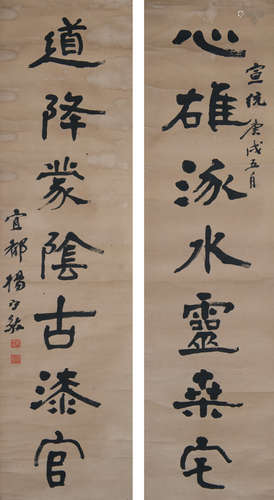 宣統庚戌五月
心雄涿水靈桒宅
道降蒙陰古漆官
宜都楊守敬